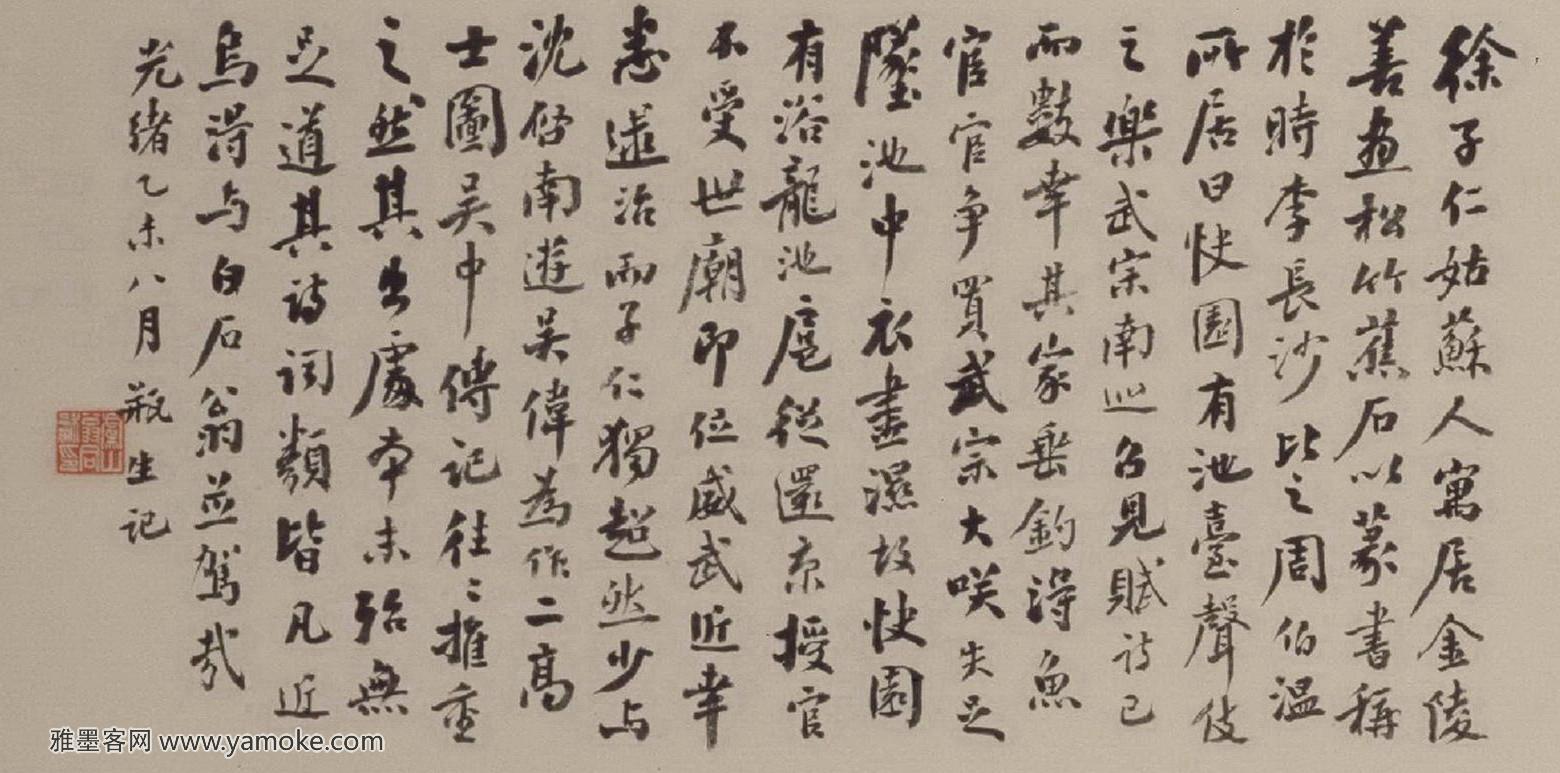 徐子仁姑蘇人寓居金陵
善畫松竹蕉石以篆書稱
於時李長沙比之周伯温
所居曰快園有池臺聲伎
之樂武宗南巡召見賦詩已
而數幸其家垂釣得魚
宦官争買武宗大咲失足
墮池中衣盡濕故快園
有浴龍池扈從還京授官
不受世廟即位威武近幸
悉逮治而子仁獨超然少与
沈啓南遊吴偉為作二高
士圖吴中傳記往〻推重
之然其出處本末殆無
足道其詩詞類皆凡近
烏得与白石翁並駕哉
光緒乙未八月 瓶生記
雅墨客网 www.yamoke.com